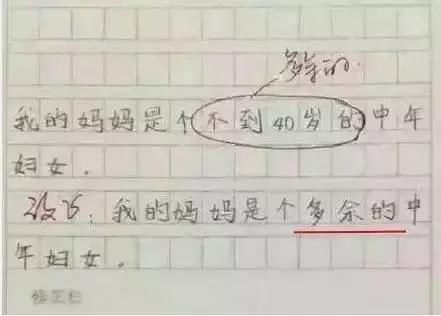 多余的
我的妈妈是个不到40岁的中年
妇女。
改为：我的妈妈是个多余的中
年妇女。
修正栏